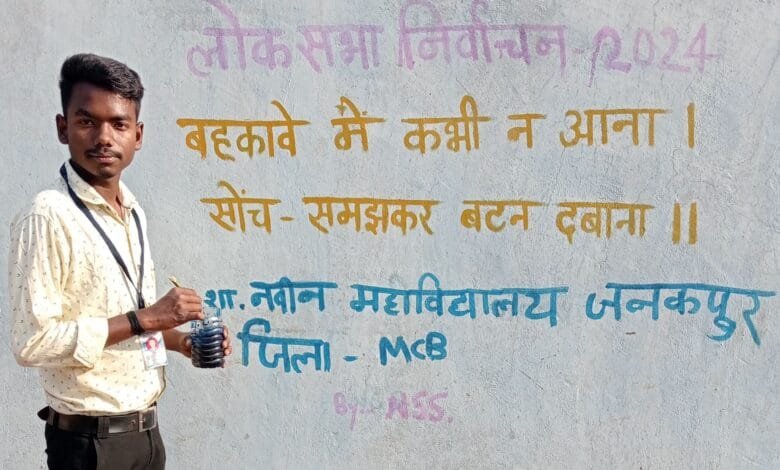 लोकसभा निर्वाचन-2024
बहकावे में कभी न आना ।
सोंच-समझकर बटन दबाना ॥
शा. नवीन महाविद्यालय जनकपुर
जिला - MCB
By- NSS.